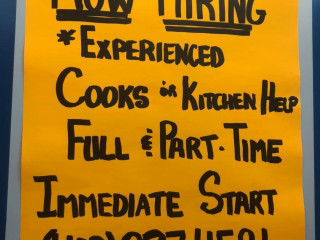 NOW HIRING
*EXPERIENCED
COOKS or KITCHEN HELP
FULL & PART-TIME
IMMEDIATE START